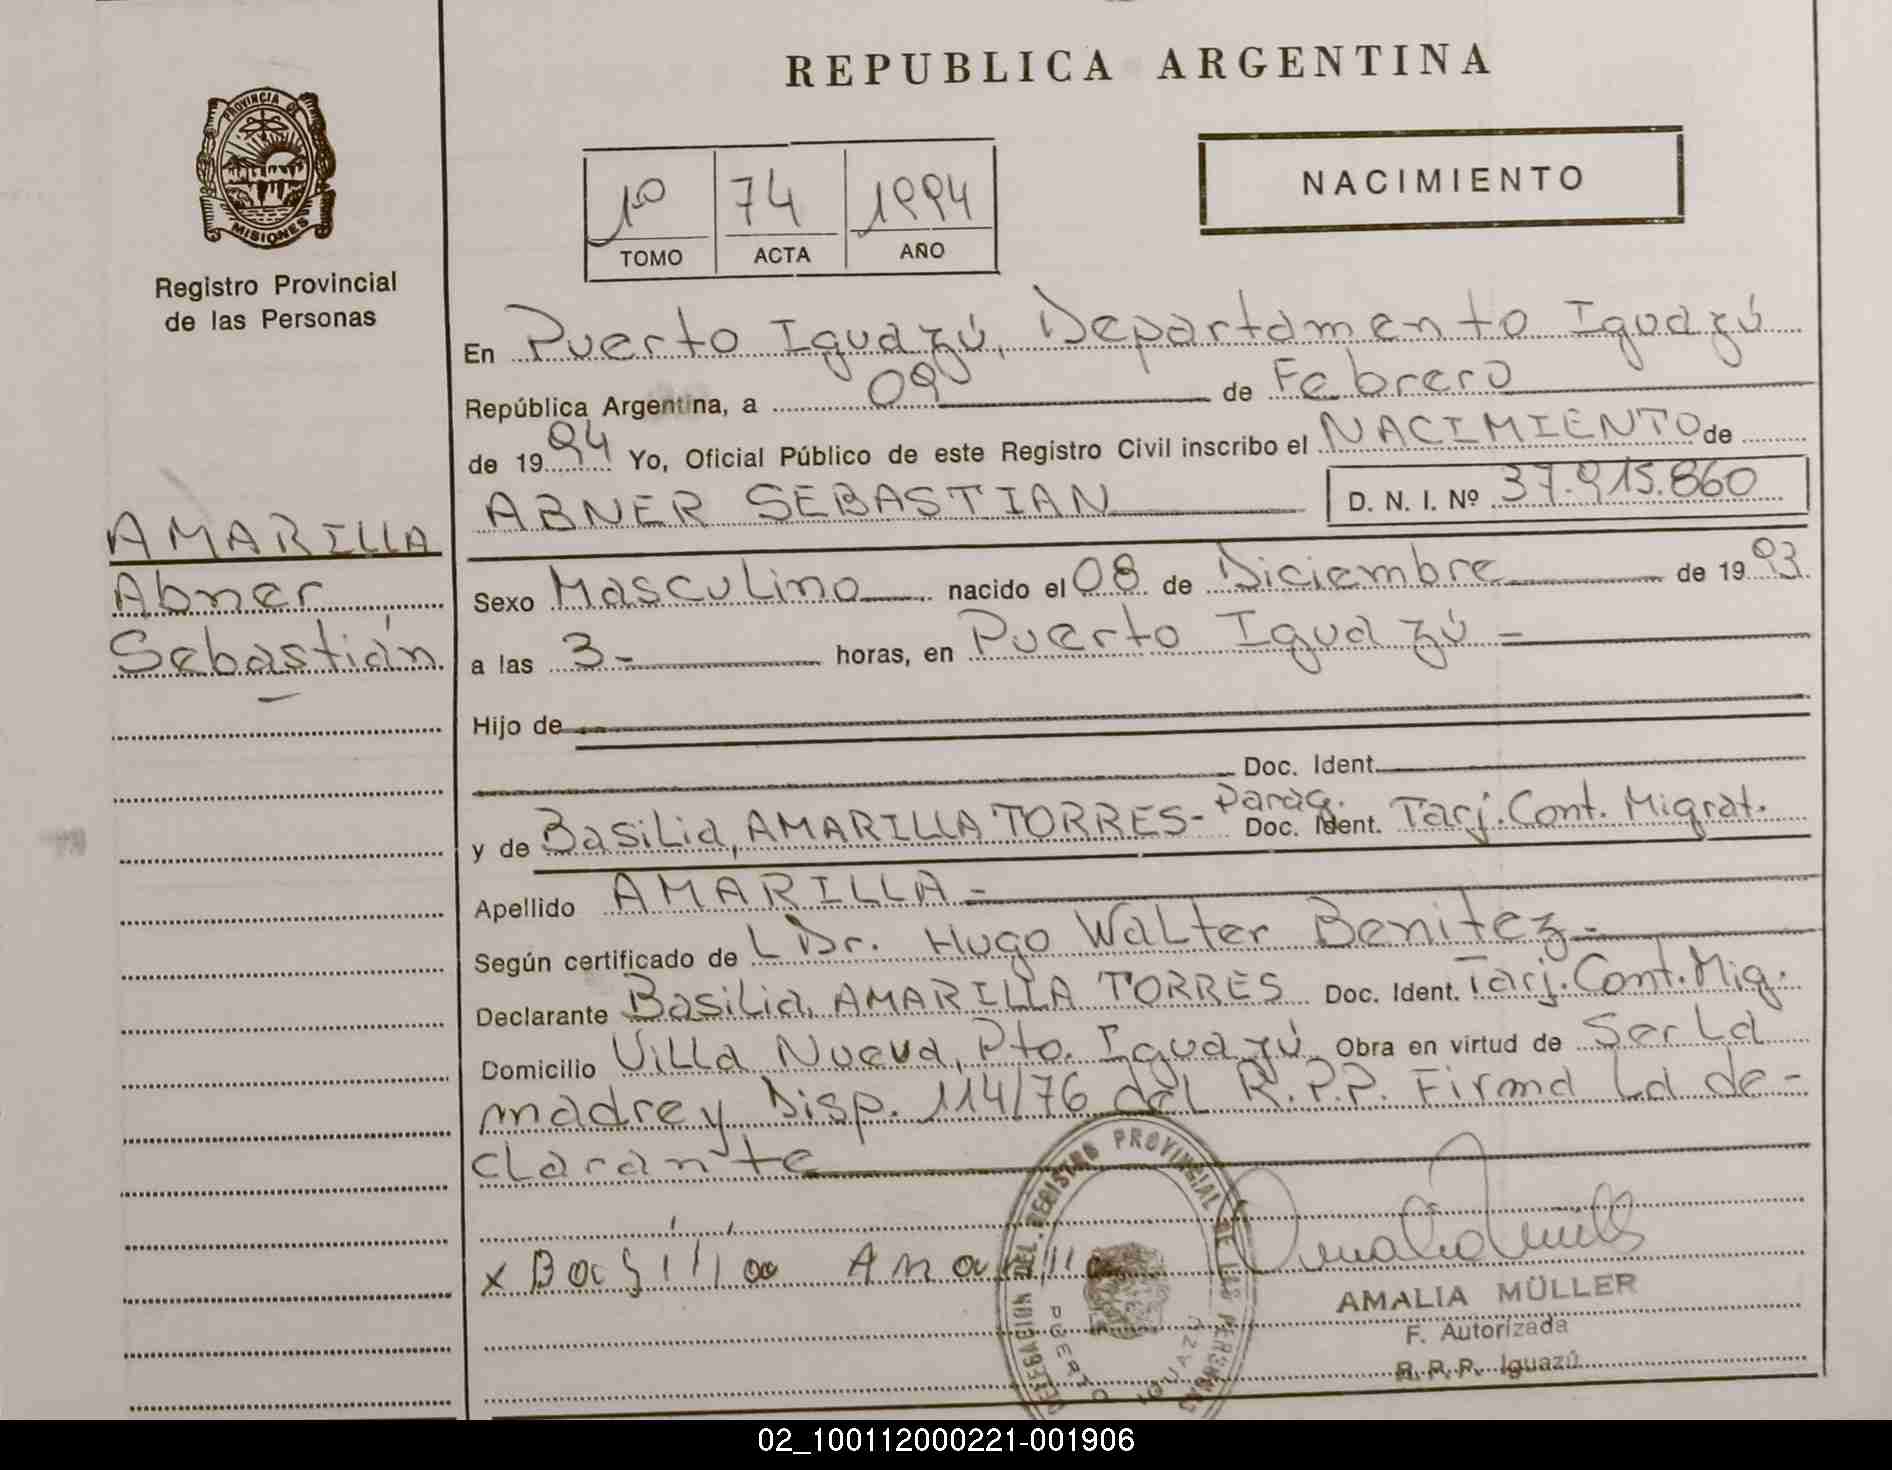 REPUBLICA ARGENTINA
PROVINCIA DE
MISIONES
Registro Provincial
de las Personas
1º 74 1994
TOMO ACTA AÑO
NACIMIENTO
En Puerto Iguazú, Departamento Iguazú
República Argentina, a 09 de Febrero
de 1994 Yo, Oficial Público de este Registro Civil inscribo el NACIMIENTO de
ABNER SEBASTIAN D. N. I. Nº 37.915.860
AMARILLA
Abner
Sebastián
Sexo Masculino nacido el 08 de Diciembre de 1993
a las 3- horas, en Puerto Iguazú =
Hijo de
Doc. Ident.
y de Basilia, AMARILLA TORRES- Parag. Doc. Ident. Tarj. Cont. Migrat.
Apellido AMARILLA =
Según certificado de L Dr. Hugo Walter Benitez =
Declarante Basilia, AMARILLA TORRES Doc. Ident. Tarj. Cont. Mig.
Domicilio Villa Nueva, Pto. Iguazú Obra en virtud de Ser La
madre y Disp. 114/76 del R.P.P. Firma La de-
clarante
x Basilia Amarilla
DELEGACION DEL REGISTRO PROVINCIAL DE LAS PERSONAS
PUERTO IGUAZU
AMALIA MÜLLER
F. Autorizada
R.P.P. Iguazú
02_100112000221-001906